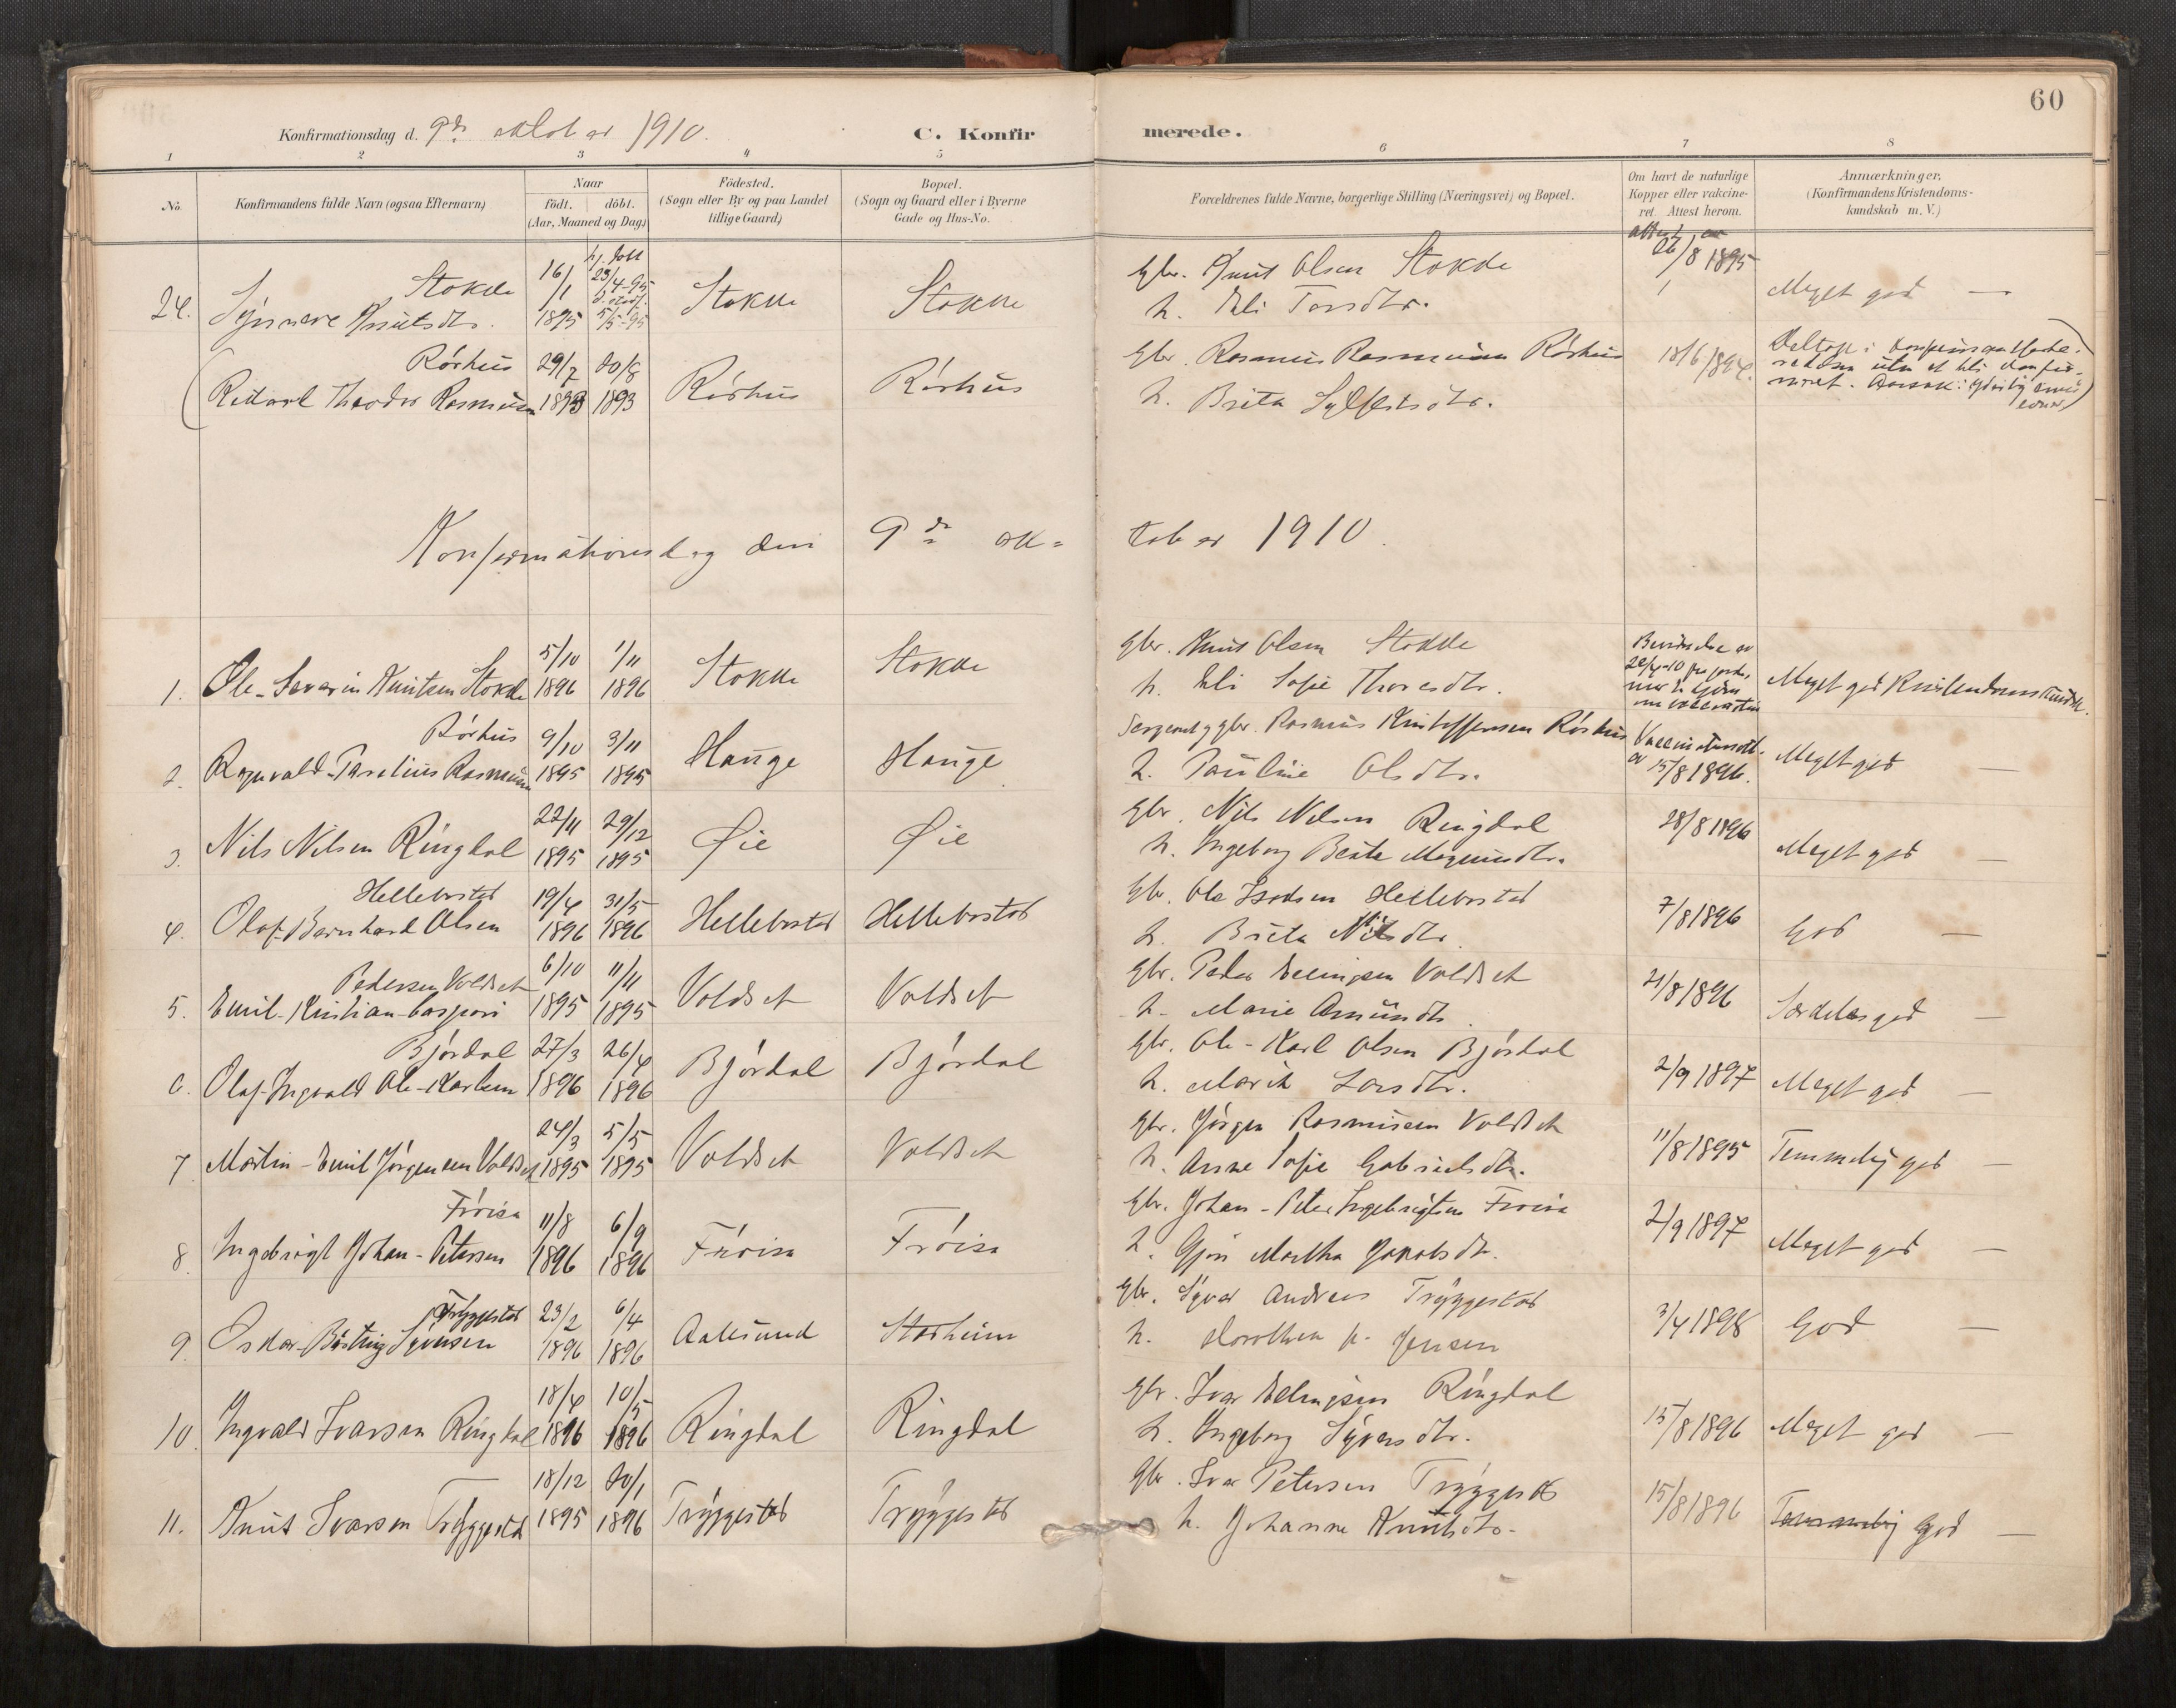 60
Konfirmationsdag d. 9de oktober 1910.
C. Konfirmerede.
1 2 3 4 5 6 7 8
No.
Konfirmandens fulde Navn (ogsaa Efternavn)
Naar
födt. döbt.
(Aar, Maaned og Dag)
Födested.
(Sogn eller By og paa Landet
tillige Gaard)
Bopæl.
(Sogn og Gaard eller i Byerne
Gade og Hus-No.
Forældrenes fulde Navne, borgerlige Stilling (Næringsvei) og Bopæl.
Om havt de naturlige
Kopper eller vakcine-
ret. Attest herom.
Anmærkninger.
(Konfirmandens Kristendoms-
kundskab m. V.)
24. Stokke 16/1 hj. döbt 23/4-95 Stokke Stokke Gbr. Knut Olsen Stokke 26/8 1895
Synneve Knutsdtr. 1895 5/5-95 h. Eli Tordtr. Meget god —
Rörhus 29/7 20/8 Rörhus Rörhus Gbr. Rasmus Rasmussen Rörhus 18/6 1894.
(Rikard Theodor Rasmussen 1893 1893 h. Brita Sylfestsdtr.
Konfirmationsdag den 9de ok=tober 1910.
1. Ole-Severin Knutsen Stokke 5/10 1896 1/11 1896 Stokke Stokke Gbr. Knut Olsen Stokke
h. Eli Sofie Thoresdtr. Meget god Kristendomskundsk.
2. Rörhus 9/10 3/11 Hauge Hauge Sergeant og gbr. Rasmus Kristoffersen Rörhus Vaccinationsatt.
Ragnvald-Parelius Rasmussen 1895 1895 h. Pauline Olsdtr. av 15/8 1896. Meget god —
3. Nils Nilsen Ringdal 22/11 1895 29/12 1895 Øie Øie Gbr. Nils Nilsen Ringdal 28/8 1896
h. Ingeborg Beate Magnusdtr. Meget god —
4. Hellebostad 19/4 31/5 Hellebostad Hellebostad Gbr. Ole Isaksen Hellebostad 7/8 1896
Olaf-Bernhard Olsen 1896 1896 h. Brita Nilsdtr. God —
5. Pedersen Voldset 6/10 11/11 Voldset Voldset Gbr. Peder Ellingsen Voldset 21/8 1896
Emil-Kristian-Caspari 1895 1895 h. Marie Amundtr. Særdeles god —
6. Bjørdal 27/3 26/4 Bjørdal Bjørdal Gbr. Ole-Karl Olsen Bjørdal 2/9 1897
Olaf-Ingvald Ole-Karlsen 1896 1896 h. Marit Larsdtr. Meget god —
7. Martin-Emil Jörgensen Voldset 24/3 1895 5/5 1895 Voldset Voldset Gbr. Jörgen Rasmussen Voldset 11/8 1895
h. Anne Sofie Gabrielsdtr. Temmelig god —
8. Fröisa 11/8 6/9 Fröisa Fröisa Gbr. Johan-Peter Ingebrigtsen Fröisa 2/9 1897
Ingebrigt Johan-Petersen 1896 1896 h. Gjöri Martha Jakobsdtr. Meget god —
9. Tryggestad 23/2 6/4 Aalesund Storheim Gbr. Syver Andreas Tryggestad 3/4 1898
Oskar Syversen 1896 1896 h. Dorothea f. Jensen God —
10. Ingvald Ivarsen Ringdal 18/4 1896 10/5 1896 Ringdal Ringdal Gbr. Ivar Ellingsen Ringdal 15/8 1896
h. Ingeborg Syversdtr. Meget god —
11. Knut Ivarsen Tryggestad 18/12 1895 20/1 1896 Tryggestad Tryggestad Gbr. Ivar Petersen Tryggestad 15/8 1896
h. Johanne Knutsdtr. Temmelig God —